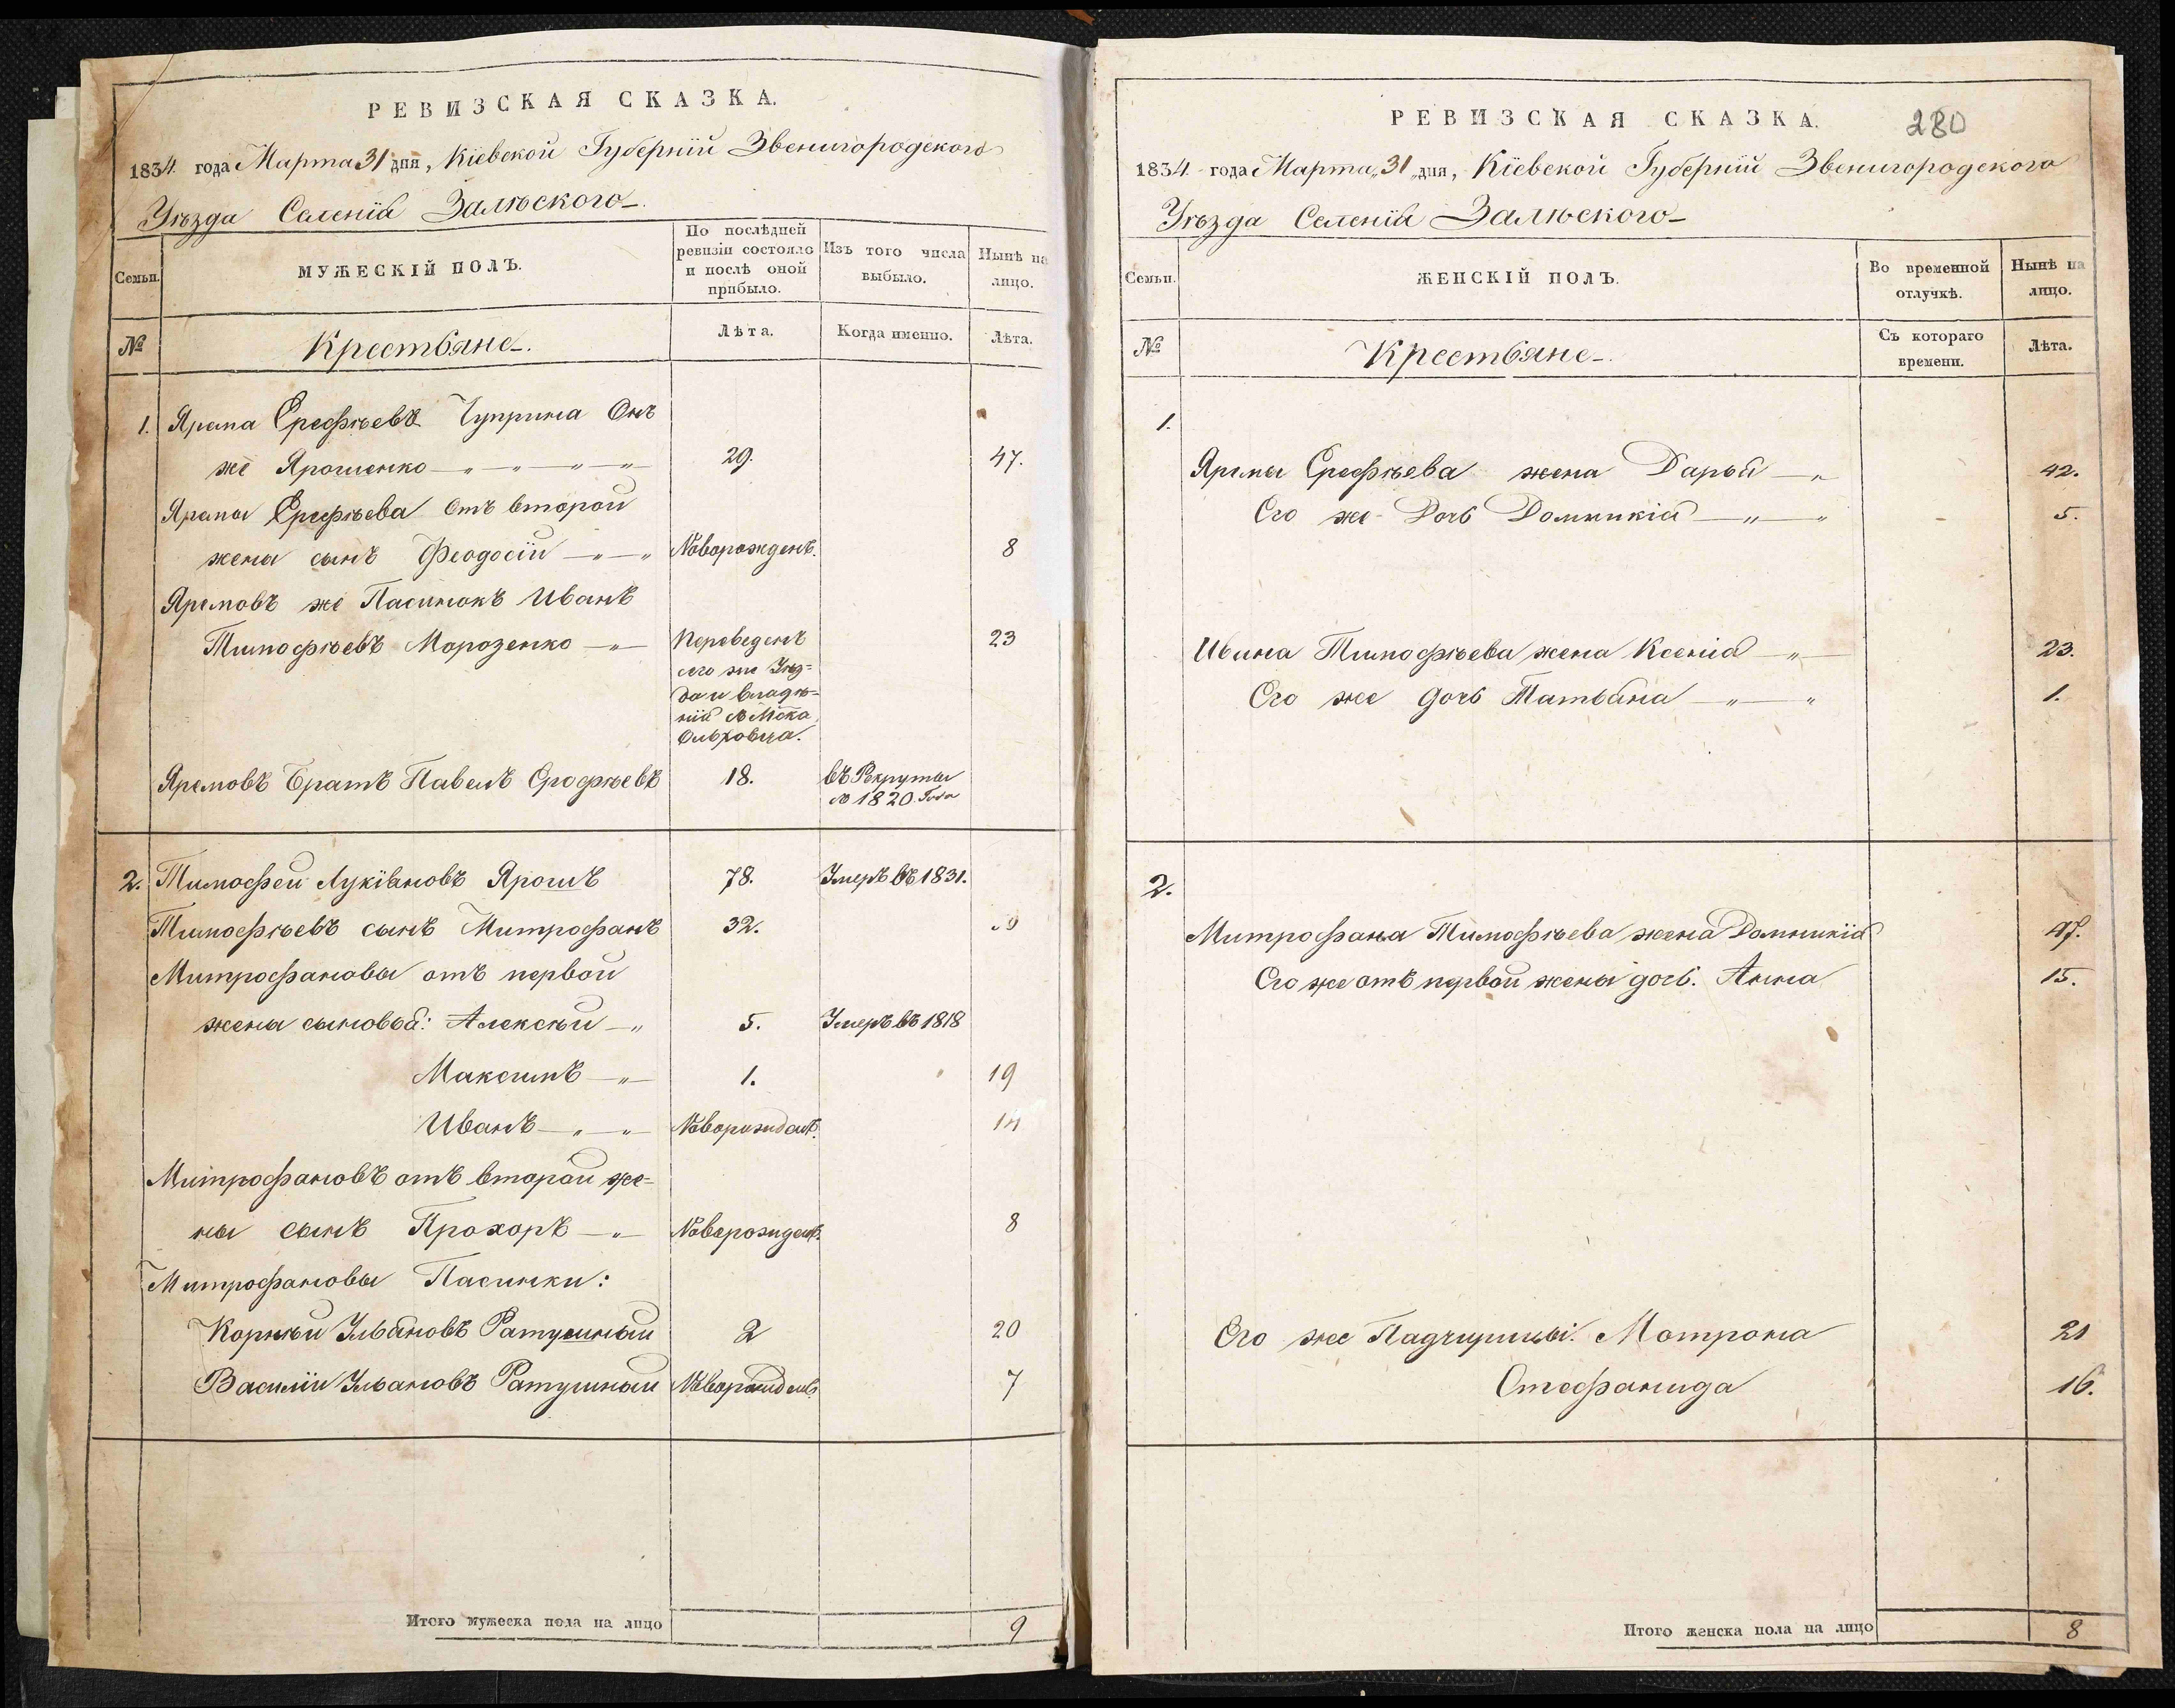 РЕВИЗСКАЯ СКАЗКА.
1834. года Марта 31 дня, Кіевской Губерніи Звенигородского
Уѣзда Селенія Залѣского
Семьи.
МУЖЕСКІЙ ПОЛЪ.
По послѣдней ревизіи состояло и послѣ оной прибыло.
Изъ того числа выбыло.
Нынѣ на лицо.
№
Крестьяне.
Лѣта.
Когда именно.
Лѣта.
1. Ярема Ерефѣевъ Чуприна Онъ
же Ярошенко 29. 47.
Яремы Ерефѣева отъ второй
жены сынъ Феодосій Новорожденъ. 8
Яремовъ же Пасинокъ Иванъ
Тимофѣевъ Морозенко Переведенъ 23
сего же Уѣз=
да и владѣ=
нія
Ольховца.
Яремовъ Братъ Павелъ Ерофѣевъ 18. въ Рекруты
1820. Года
2. Тимофей Лукіановъ Ярошъ 78. Умеръ въ 1831.
Тимофѣевъ сынъ Митрофанъ 32.
Митрофановы отъ первой
жены сыновья: Алексѣй 5. Умеръ въ 1818
Максимъ 1. 19
Иванъ Новорожденъ. 14
Митрофановъ отъ второй же=
ны сынъ Прохоръ Новорожденъ. 8
Митрофановы Пасинки:
Корнѣй Ульяновъ Ратушный 2 20
Василій Ульяновъ Ратушный Новорожденъ. 7
Итого мужеска пола на лицо 9
РЕВИЗСКАЯ СКАЗКА.
280
1834. года Марта „31„ дня, Кіевской Губерніи Звенигородского
Уѣзда Селенія Залѣского
Семьи.
ЖЕНСКІЙ ПОЛЪ.
Во временной отлучкѣ.
Нынѣ на лицо.
№
Крестьяне.
Съ котораго времени.
Лѣта.
1.
Яремы Ерефѣева жена Дарья 42.
Его же Дочь Домникія 5.
Ивана Тимофѣева жена Ксенія 23.
Его же дочь Татьяна 1.
2.
Митрофана Тимофѣева жена Домникія 47.
Его же отъ первой жены дочь. Анна 15.
Его же Падчирицы: Мотрона 21
Стефанида 16.
Итого женска пола на лицо 8